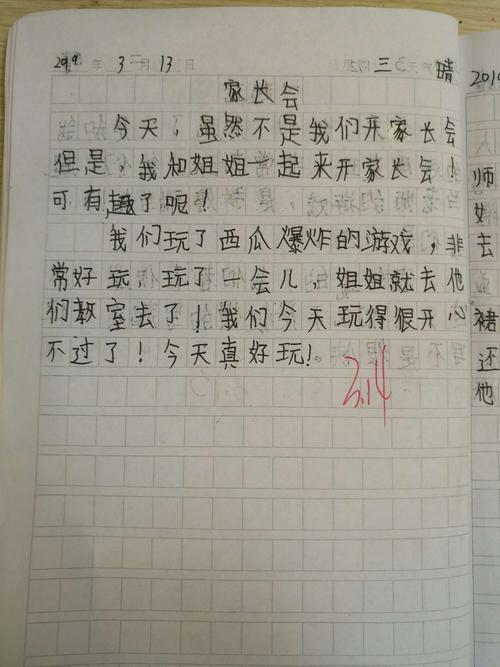 2019年3月13日 星期三 天气晴
家长会
今天，虽然不是我们开家长会
但是，我和姐姐一起来开家长会！
可有趣了呢！
我们玩了西瓜爆炸的游戏，非
常好玩，玩了一会儿，姐姐就去他
们教室去了！我们今天玩得很开心
不过了！今天真好玩！
3.14
2019
师
去
猪
还
他